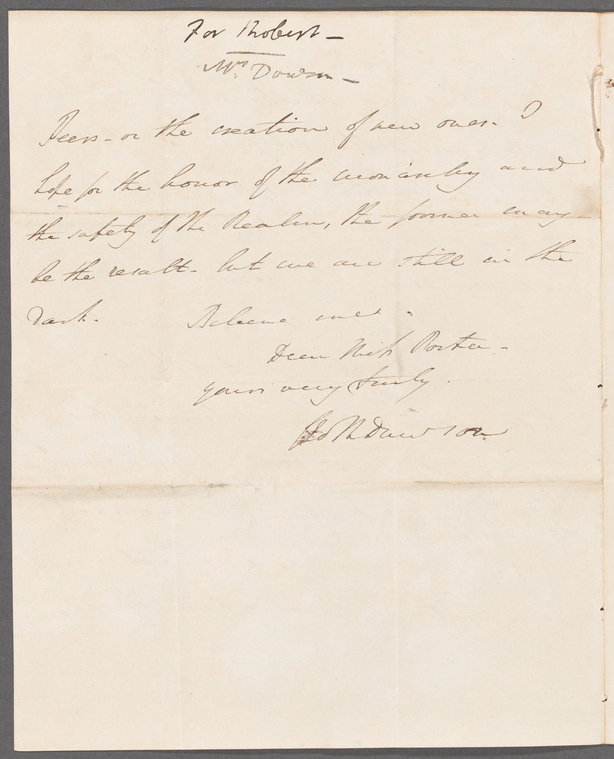 For Robert —
Mrs. Dawson —
Peers — or the creation of new ones. I
hope for the honor of the monarchy and
the safety of the Realm, the former may
be the result — but we are still in the
Dark. Believe me
Dear Miss Porter —
yours very truly.
Dawson